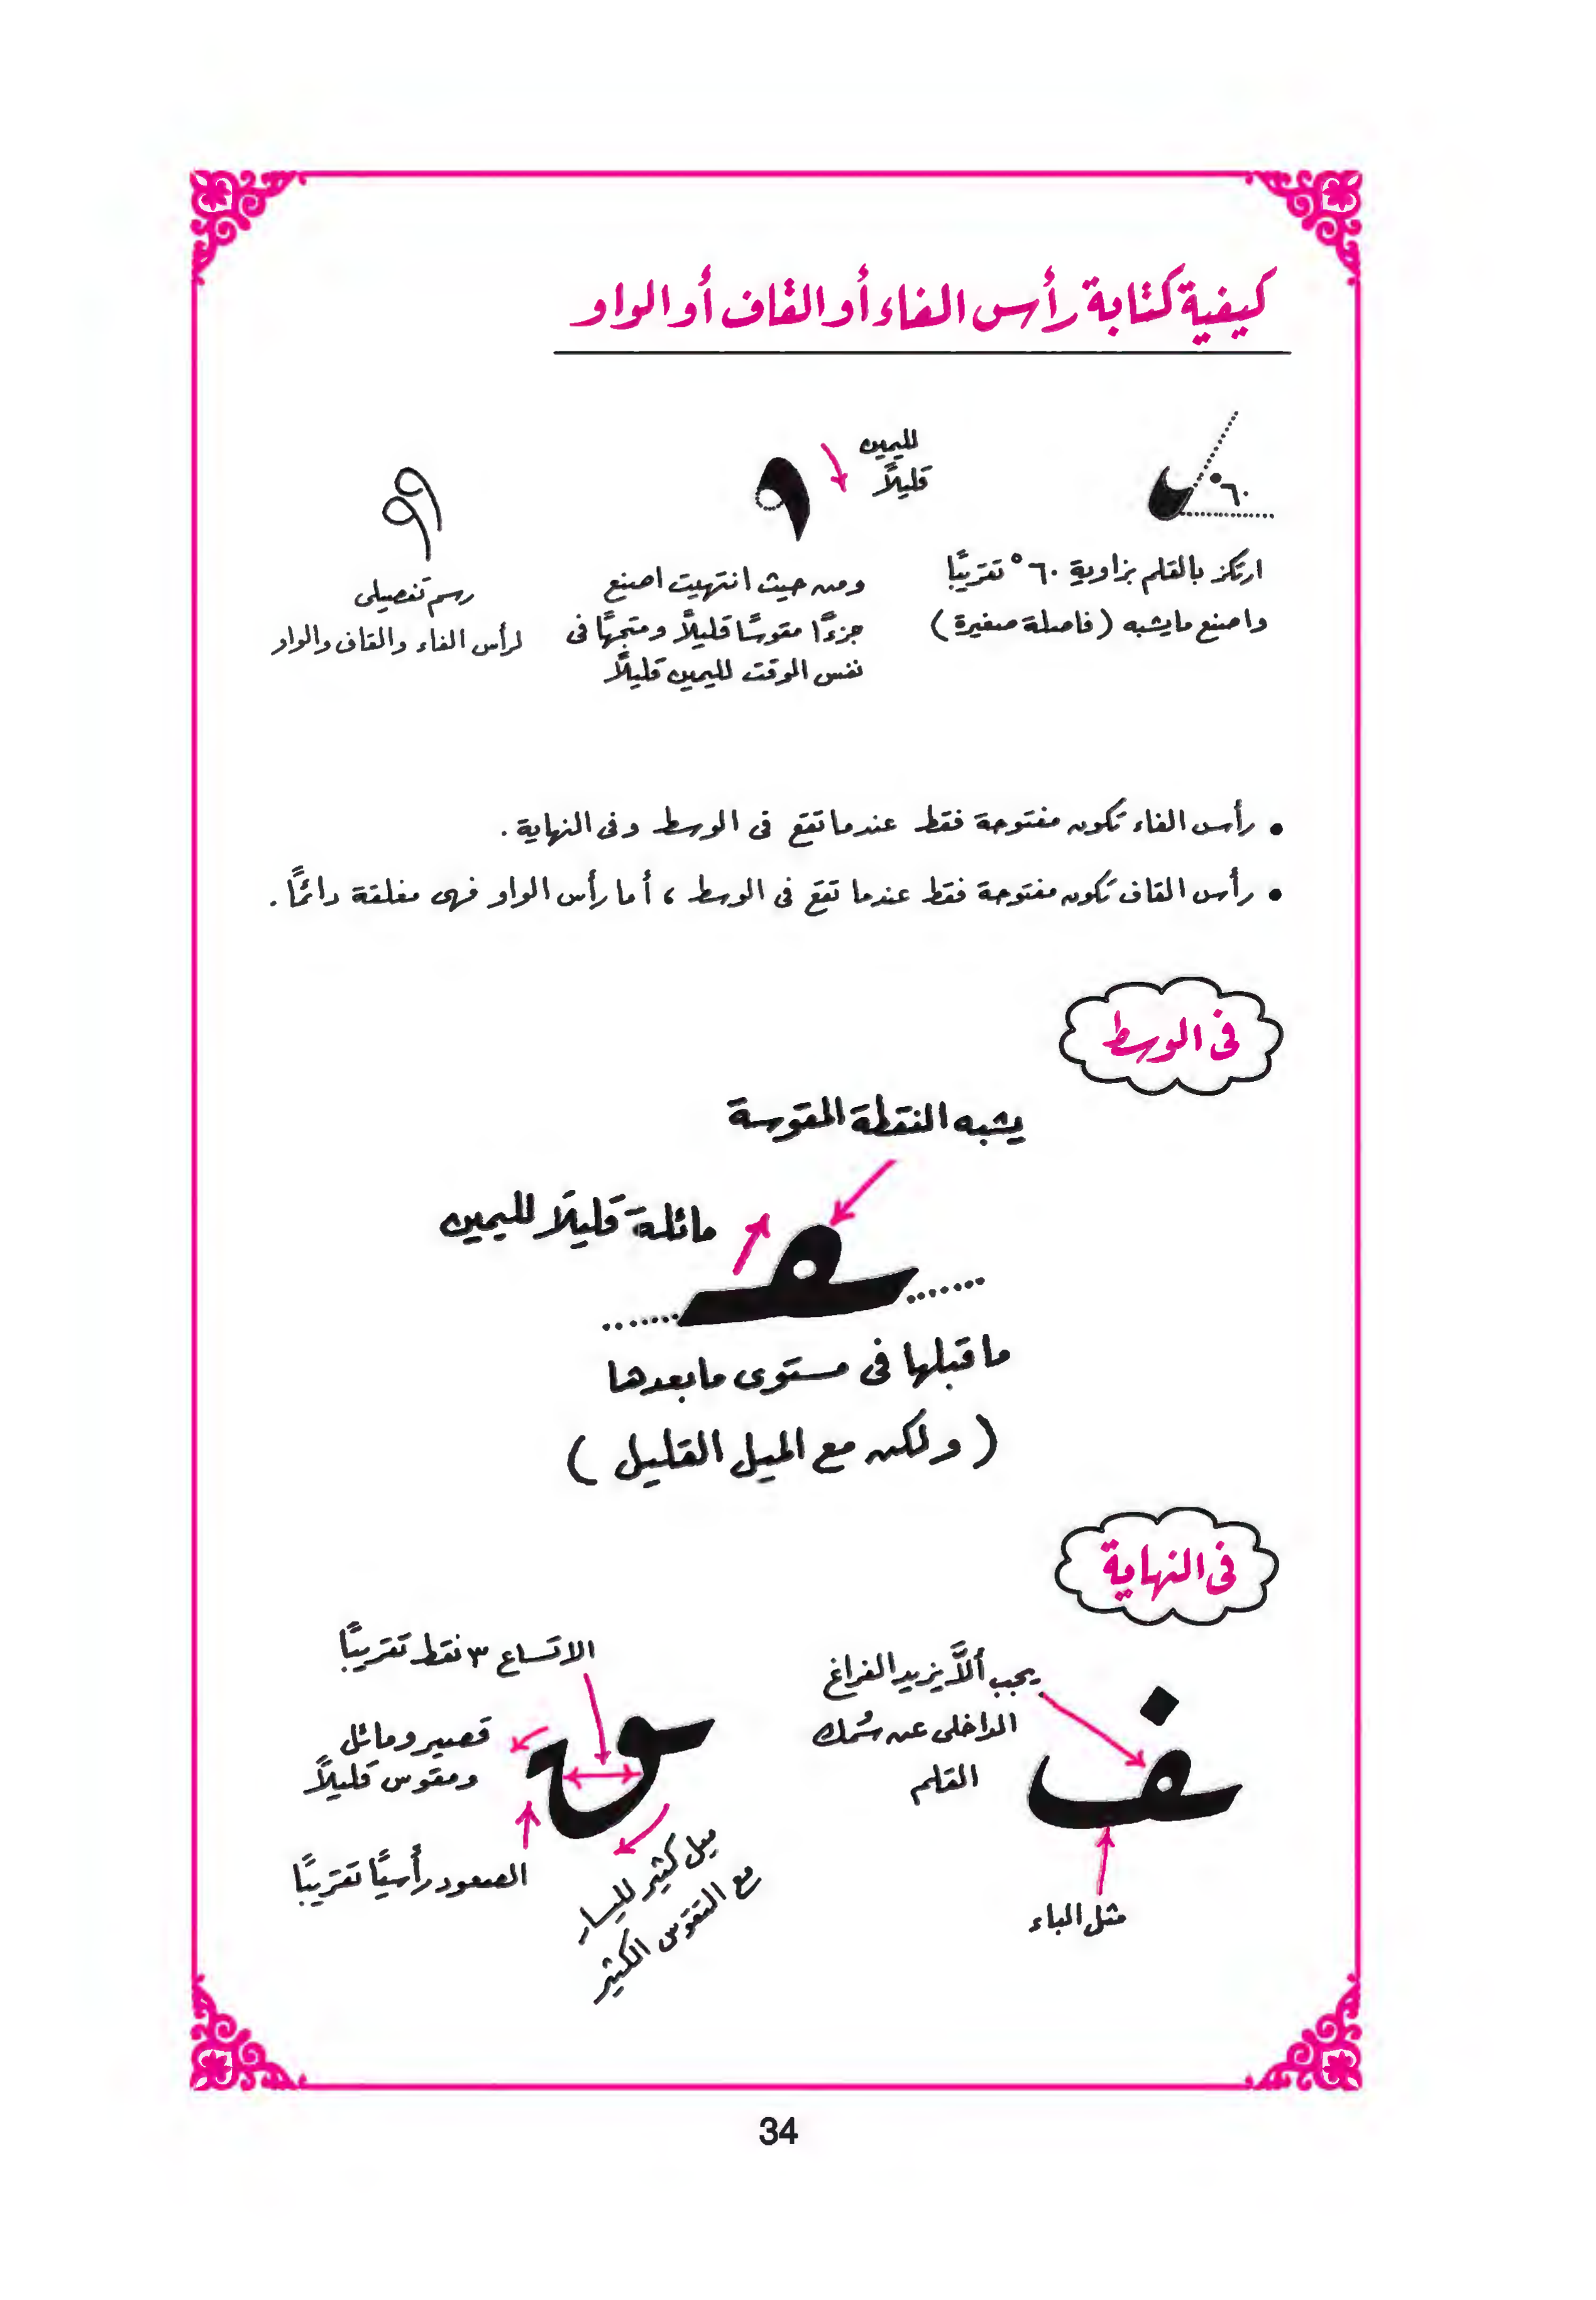 كيفية كتابة رأس الفاء أو القاف أو الواو
٦٠°
لليمين
قليلاً
ارتكز بالقلم بزاوية ٦٠° تقريبًا
واصنع ما يشبه (فاصلة صغيرة)
ومن حيث انتهيت اصنع
جزءًا مقوسًا قليلاً ومتجهًا فى
نفس الوقت لليمين قليلاً
رسم تفصيلى
لرأس الفاء والقاف والواو
• رأس الفاء تكون مفتوحة فقط عندما تقع فى الوسط وفى النهاية .
• رأس القاف تكون مفتوحة فقط عندما تقع فى الوسط ، أما رأس الواو فهى مغلقة دائمًا .
فى الوسط
يشبه النقطة المقوسة
مائلة قليلاً لليمين
ـفـ
ما قبلها فى مستوى ما بعدها
( ولكن مع الميل القليل )
فى النهاية
يجب ألاَّ يزيد الفراغ
الداخلى عن سُمك
القلم
ـف
مثل الباء
الاتساع ٣ نقط تقريبًا
قصير ومائل
ومقوس قليلاً
ـق
الصعود رأسيًا تقريبًا
ميل كثير لليسار
مع التقوس الكثير
34